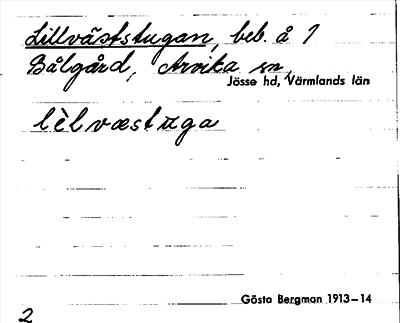 Lillväststugan, beb. å 1
Bålgård, Arvika sn,
Jösse hd, Värmlands län
lèlvæstuga
Gösta Bergman 1913–14
2